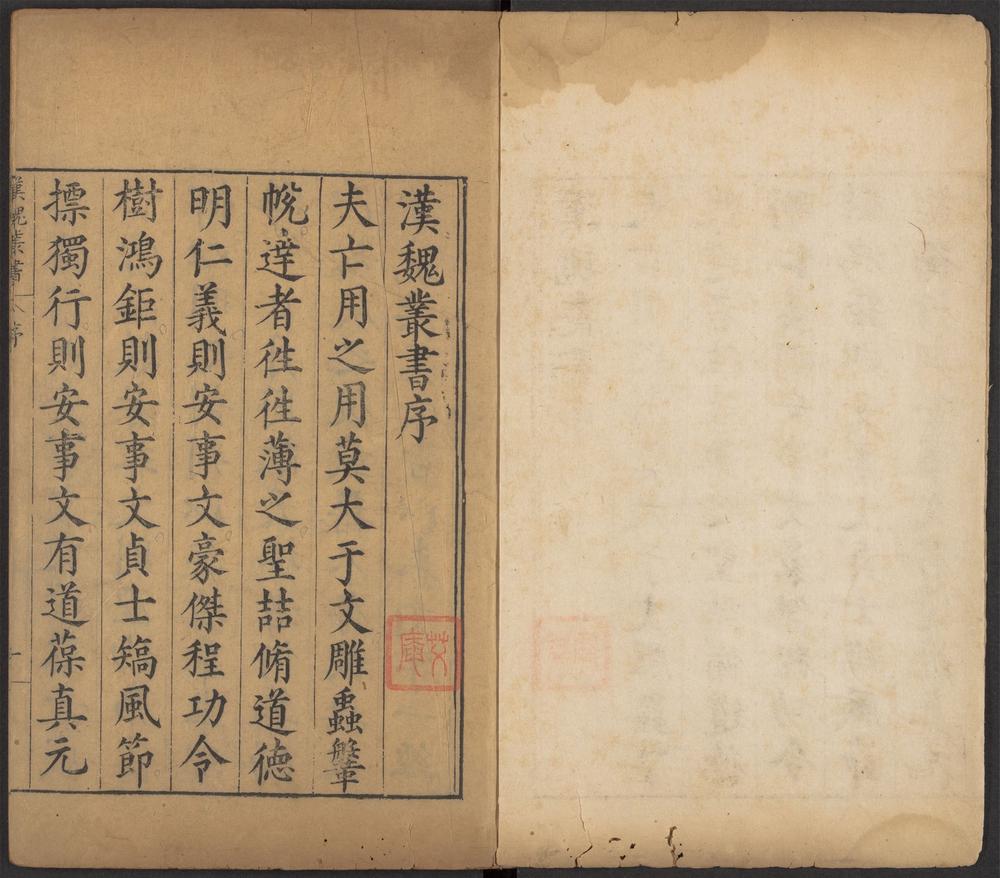 漢魏叢書序
夫亡用之用莫大于文雕蟲鞶
帨達者徃徃薄之聖喆脩道德
明仁義則安事文豪傑程功令
樹鴻鉅則安事文貞士矯風節
摽獨行則安事文有道葆真元
漢魏叢書 序 一